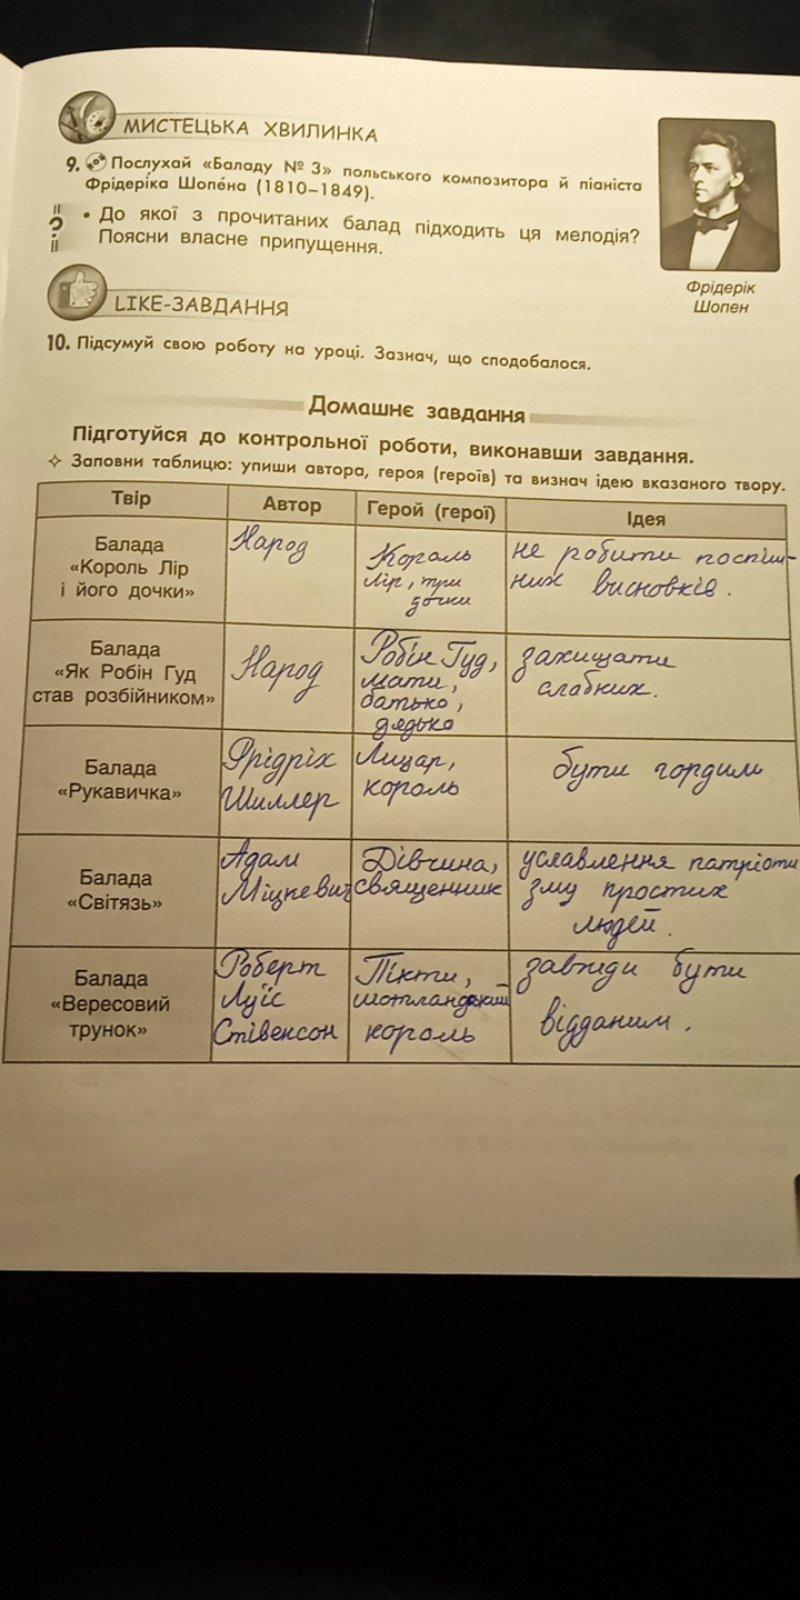 МИСТЕЦЬКА ХВИЛИНКА
9. Послухай «Баладу № 3» польського композитора й піаніста
Фрідеріка Шопéна (1810–1849).
? • До якої з прочитаних балад підходить ця мелодія?
Поясни власне припущення.
Фрідерік
Шопен
LIKE-ЗАВДАННЯ
10. Підсумуй свою роботу на уроці. Зазнач, що сподобалося.
Домашнє завдання
Підготуйся до контрольної роботи, виконавши завдання.
✧ Заповни таблицю: упиши автора, героя (героїв) та визнач ідею вказаного твору.
Твір Автор Герой (герої) Ідея
Балада
«Король Лір
і його дочки»
Народ
Король
Лір, три
дочки
не робити поспіш-
них висновків.
Балада
«Як Робін Гуд
став розбійником»
Народ
Робін Гуд,
мати,
батько,
дядько
захищати
слабких.
Балада
«Рукавичка»
Фрідріх
Шиллер
Лицар,
король
бути гордим
Балада
«Світязь»
Адам
Міцкевич
Дівчина,
священник
уславлення патріоти
зму простих
людей.
Балада
«Вересовий
трунок»
Роберт
Луїс
Стівенсон
Пікти,
шотландський
король
завжди бути
відданим.